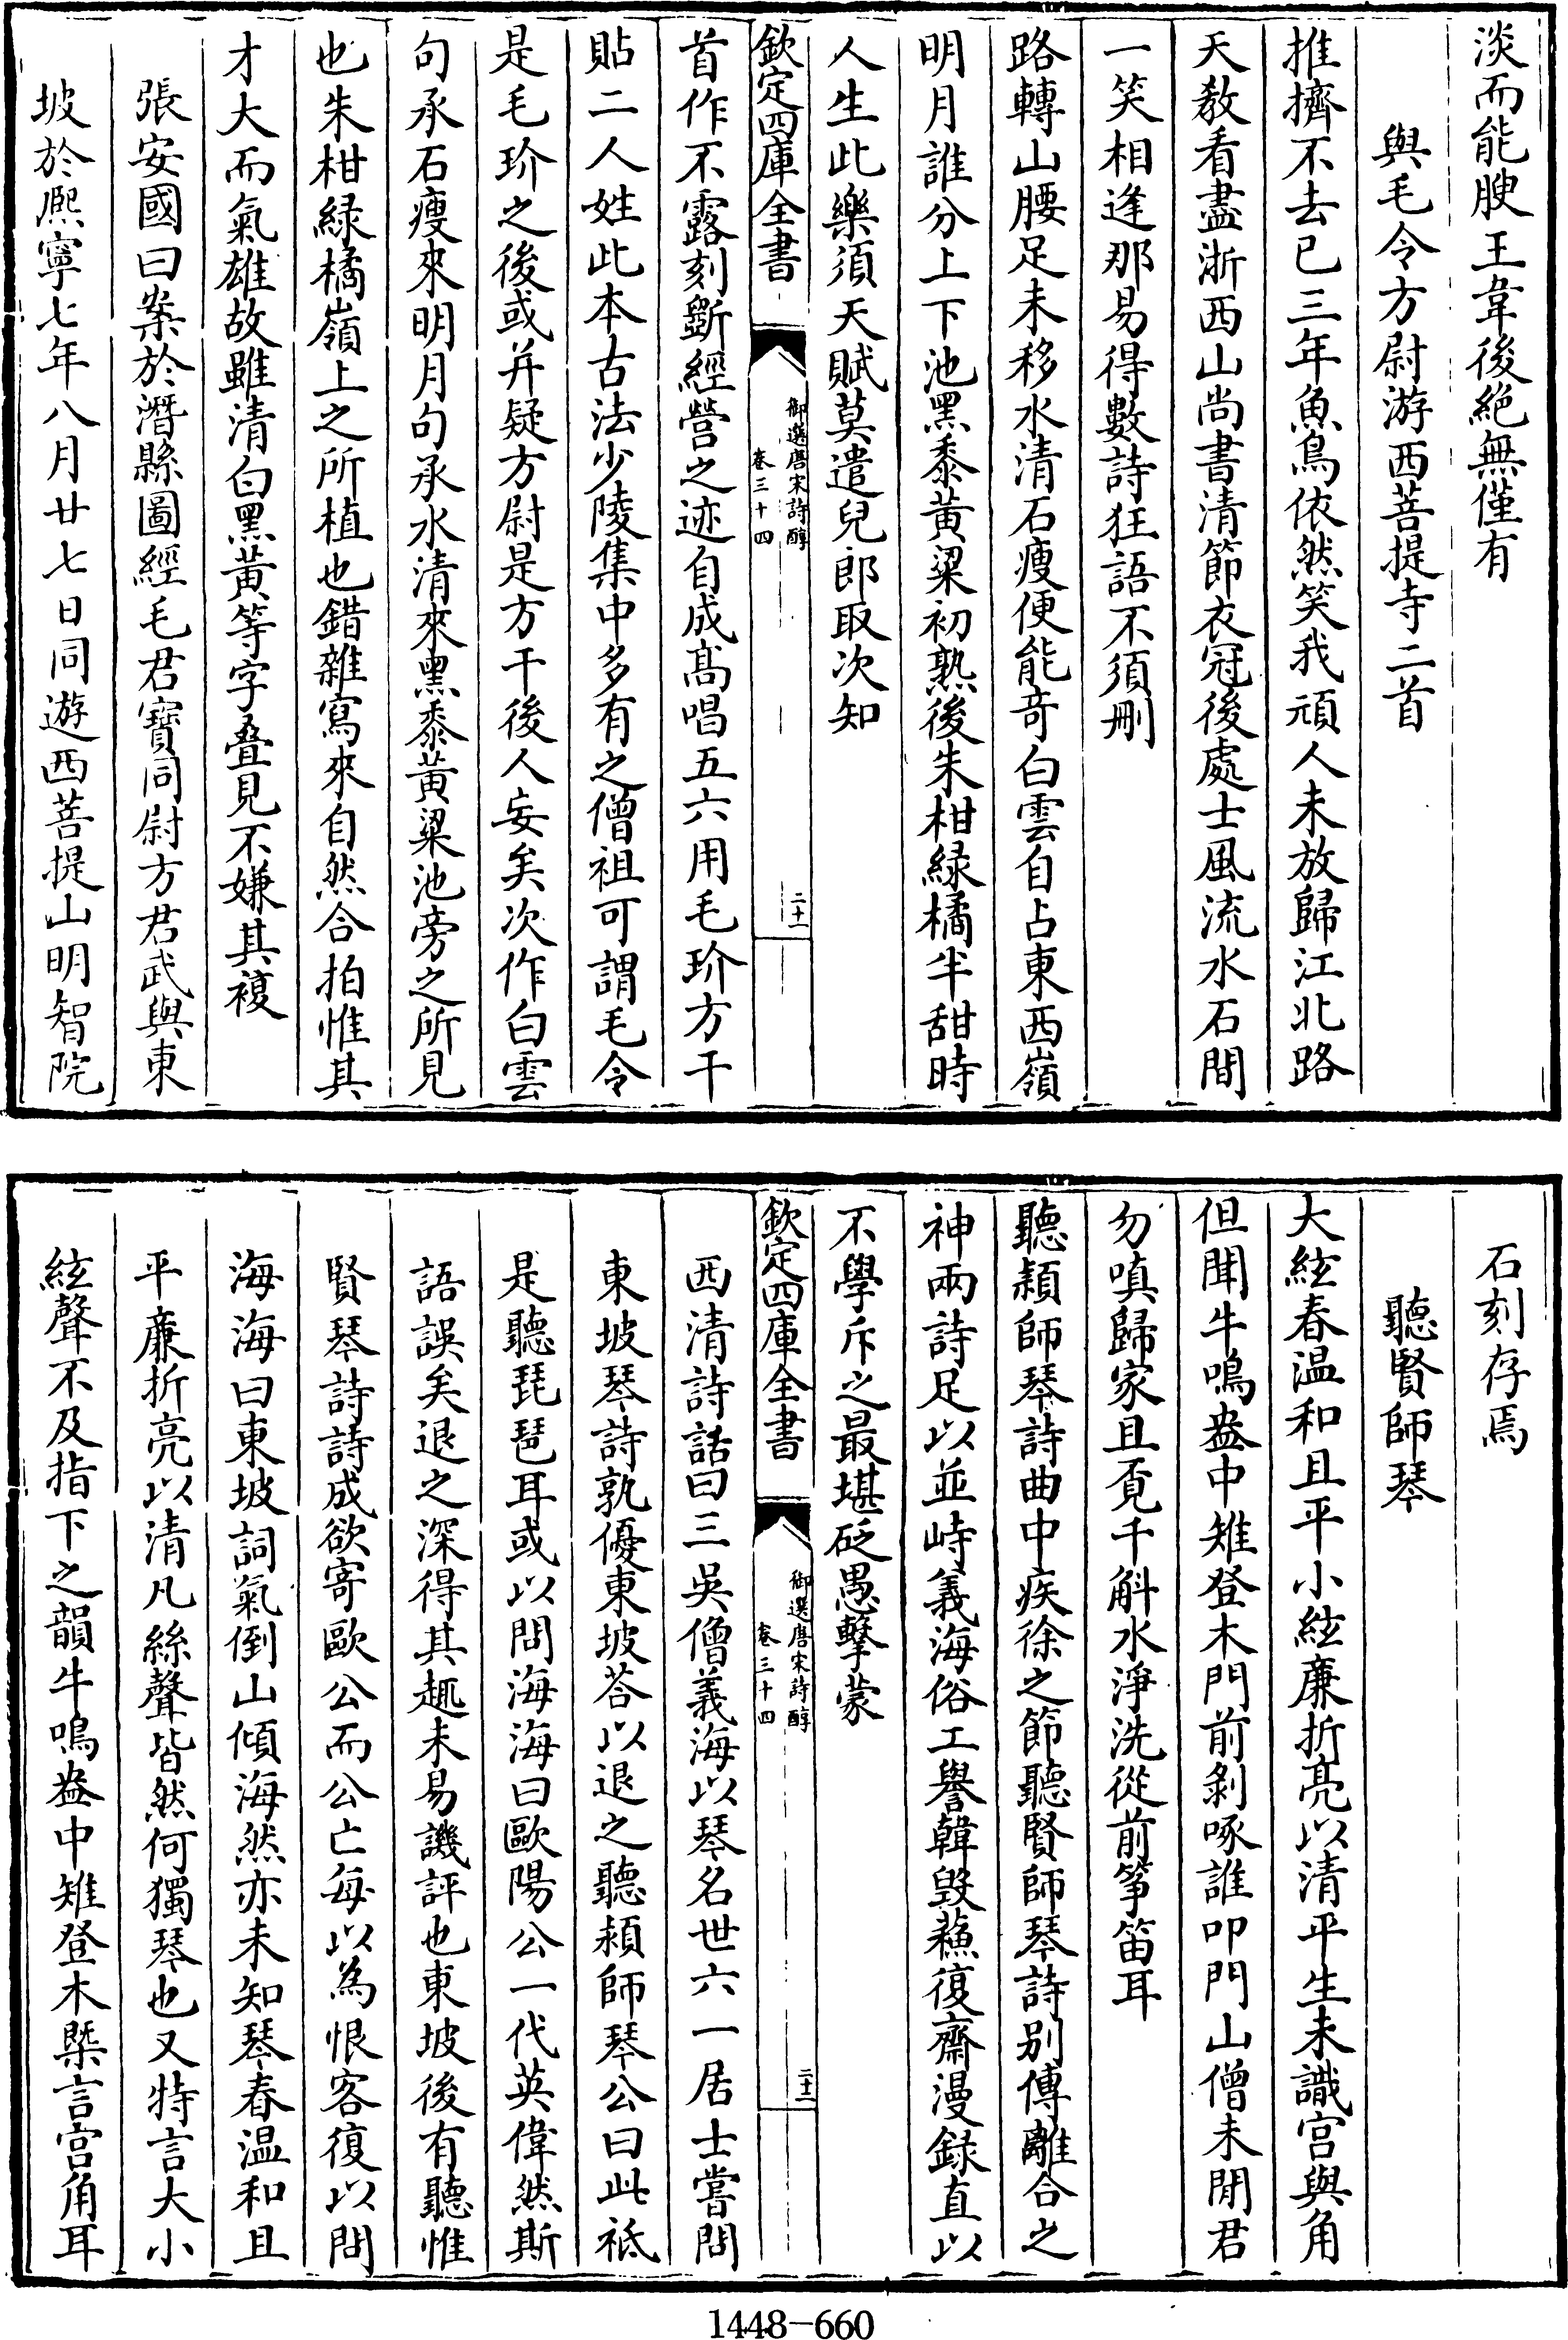 淡而能腴王韋後絕無僅有
與毛令方尉游西菩提寺二首
推擠不去已三年魚鳥依然笑我頑人未放歸江北路
天教看盡浙西山尚書清節衣冠後處士風流水石間
一笑相逢那易得數詩狂語不須刪
路轉山腰足未移水清石瘦便能奇白雲自占東西嶺
明月誰分上下池黑黍黃粱初熟後朱柑緑橘半甜時
人生此樂須天賦莫遣兒郎取次知
欽定四庫全書
御選唐宋詩醇
卷三十四
二十一
首作不露刻斵經營之迹自成髙唱五六用毛玠方干
貼二人姓此本古法少陵集中多有之僧祖可謂毛令
是毛玠之後或并疑方尉是方干後人妄矣次作白雲
句承石瘦來明月句承水清來黑黍黃粱池旁之所見
也朱柑緑橘嶺上之所植也錯雜寫來自然合拍惟其
才大而氣雄故雖清白黑黃等字疊見不嫌其複
張安國曰案於潛縣圖經毛君寶同尉方君武與東
坡於熈寧七年八月廿七日同遊西菩提山明智院
石刻存焉
聽賢師琴
大絃春温和且平小絃亷折亮以清平生未識宫與角
但聞牛鳴盎中雉登木門前剝啄誰叩門山僧未閒君
勿嗔歸家且覔千斛水淨洗從前筝笛耳
聽頴師琴詩曲中疾徐之節聽賢師琴詩别傳離合之
神兩詩足以並峙義海俗工譽韓毁蘓復齋漫録直以
不學斥之最堪砭愚擊蒙
欽定四庫全書
御選唐宋詩醇
卷三十四
二十二
西清詩話曰三吳僧義海以琴名世六一居士嘗問
東坡琴詩孰優東坡荅以退之聽頴師琴公曰此祗
是聽琵琶耳或以問海海曰歐陽公一代英偉然斯
語誤矣退之深得其趣未易譏評也東坡後有聽惟
賢琴詩詩成欲寄歐公而公亡每以為恨客復以問
海海曰東坡詞氣倒山傾海然亦未知琴春温和且
平亷折亮以清凡絲聲皆然何獨琴也又特言大小
絃聲不及指下之韻牛鳴盎中雉登木槩言宫角耳
1448-660